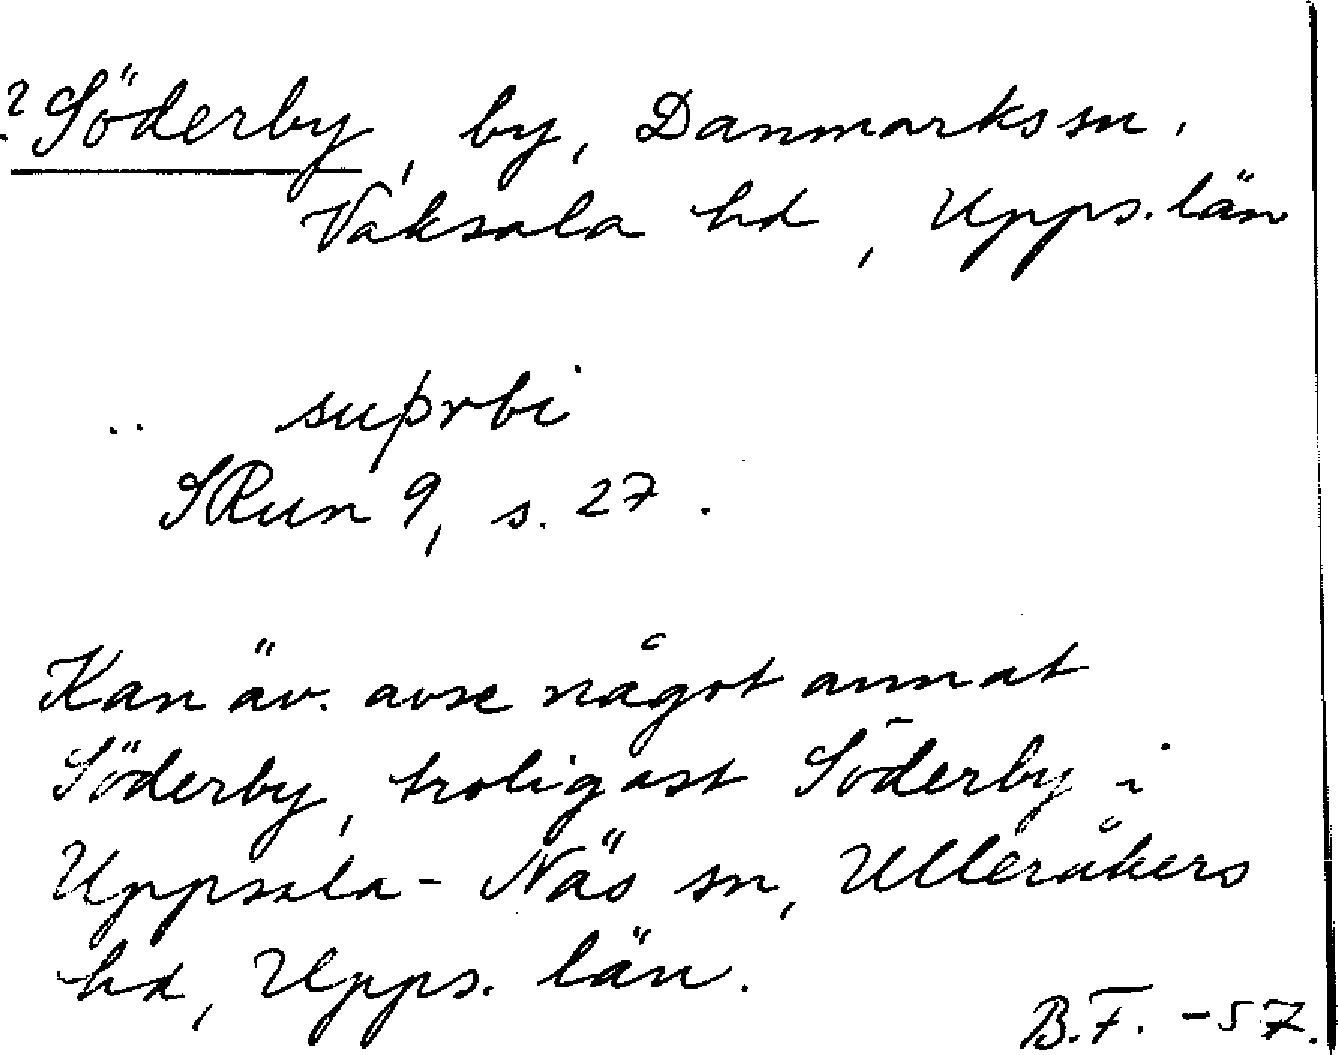 ? Söderby, by, Danmarks sn,
Vaksala hd, Upps. län
.. suþrbi
SRun 9, s. 27.
Kan äv. avse något annat
Söderby, troligast Söderby i
Uppsala-Näs sn, Ulleråkers
hd, Upps. län.
B.F. -57.